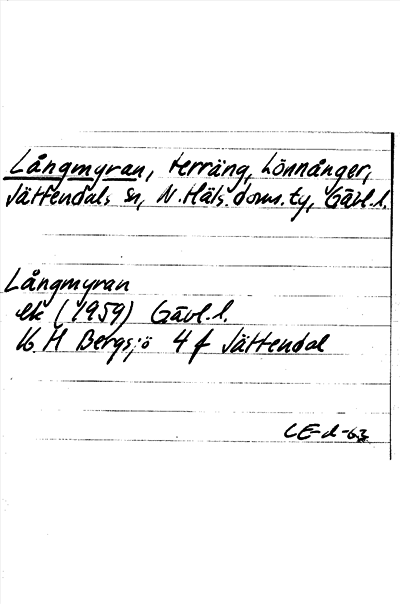 Långmyran, terräng, Lönnånger,
Jättendals sn, N. Häls. doms. ty, Gävl. l.
Långmyran
ek (1959) Gävl. l.
16 H Bergsjö 4 f Jättendal
CE-d-63